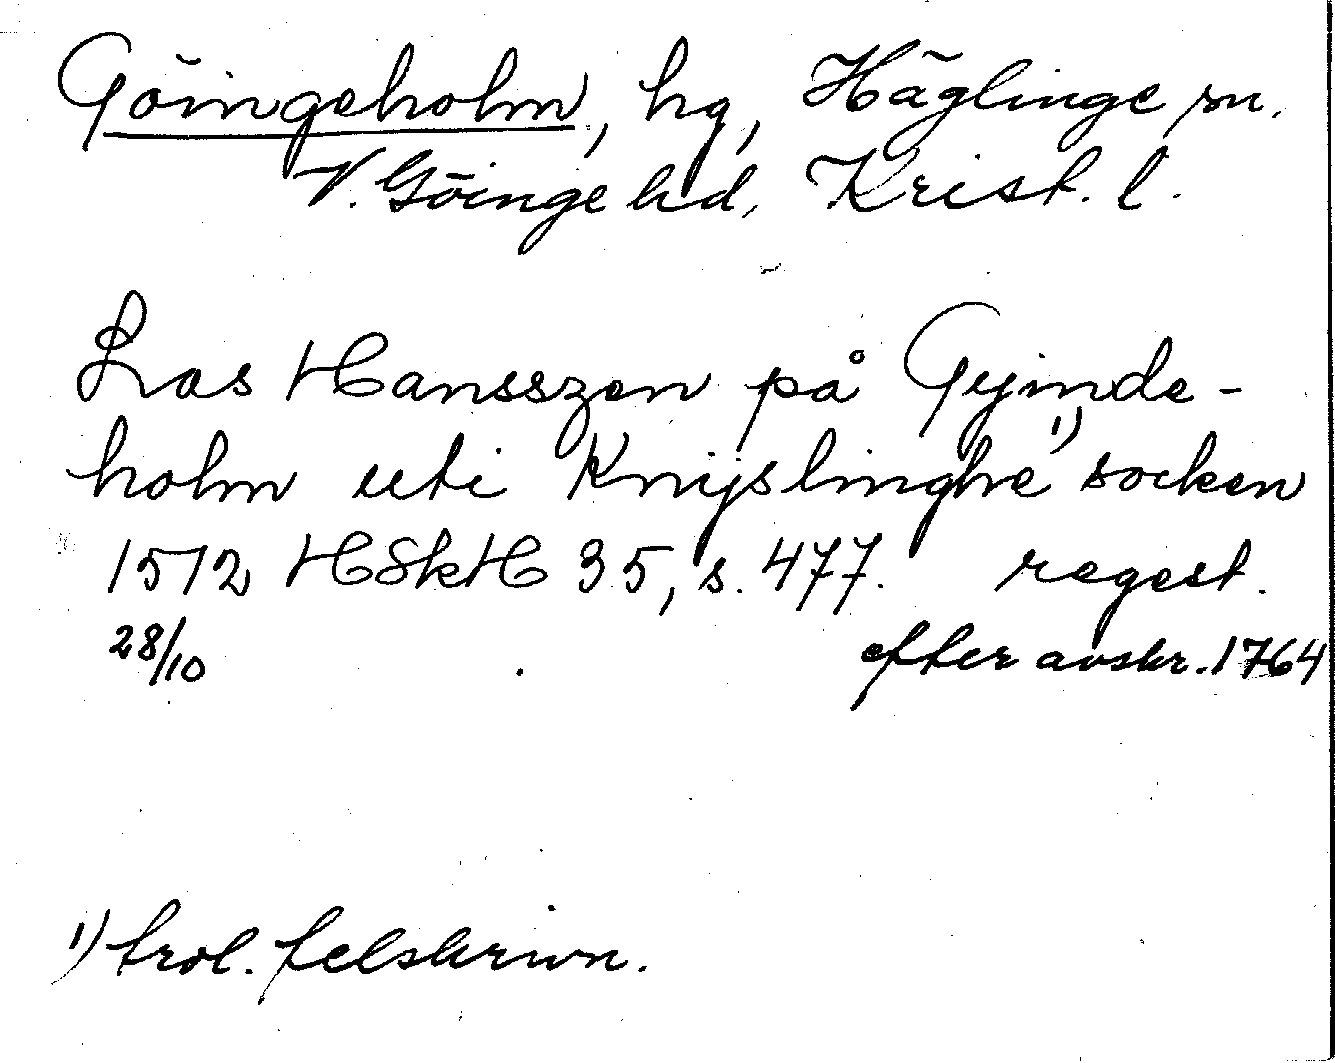 Göingeholm, hg, Häglinge sn.
V. Göinge hd, Krist. l.
Las Hansszen på Gyinde-
holm uti Knijslinghe 1) socken
1572 HSkH 35, s. 477. regest.
28/10 efter avskr. 1764
1) trol. felskrivn.